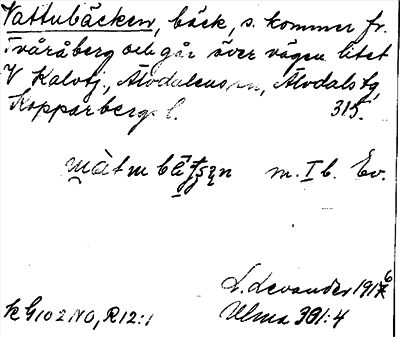 Vattubäcken, bäck, s. kommer fr.
Tvåråberg och går över vägen litet
V Kalvtj., Älvdalens sn, Älvdals tg,
Kopparbergs l. 315.
m. I b. Ev.
L. Levander 1917 6
kG102NO, R12:1 Ulma 391:4